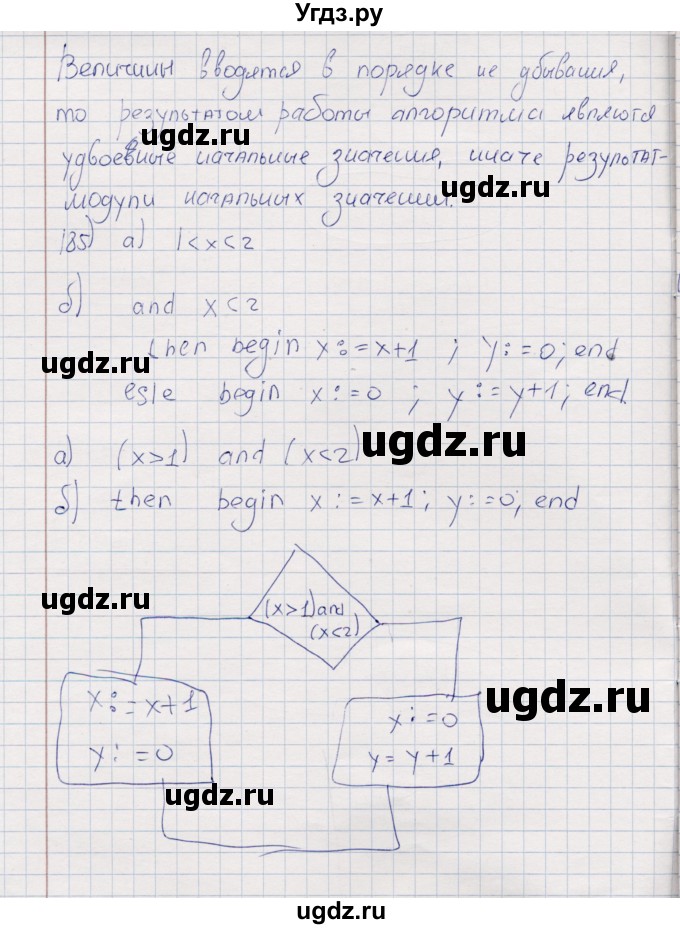 Угдз.ру
Величины вводятся в порядке не убывания,
то результатом работы алгоритма являются
ugdz.ru
удвоенные начальные значения, иначе результат-
ugdz.ru
модули начальных значений.
185) а) 1<x<2
б) and x<2
then begin x:=x+1 ; y:=0; end
ugdz.ru
esle begin x:=0 ; y:=y+1; end.
ugdz.ru
а) (x>1) and (x<2)
б) then begin x:=x+1; y:=0; end
ugdz.ru
(x>1) and
(x<2)
ugdz.ru
x:=x+1
y:=0
x:=0
y=y+1
ugdz.ru
ugdz.ru